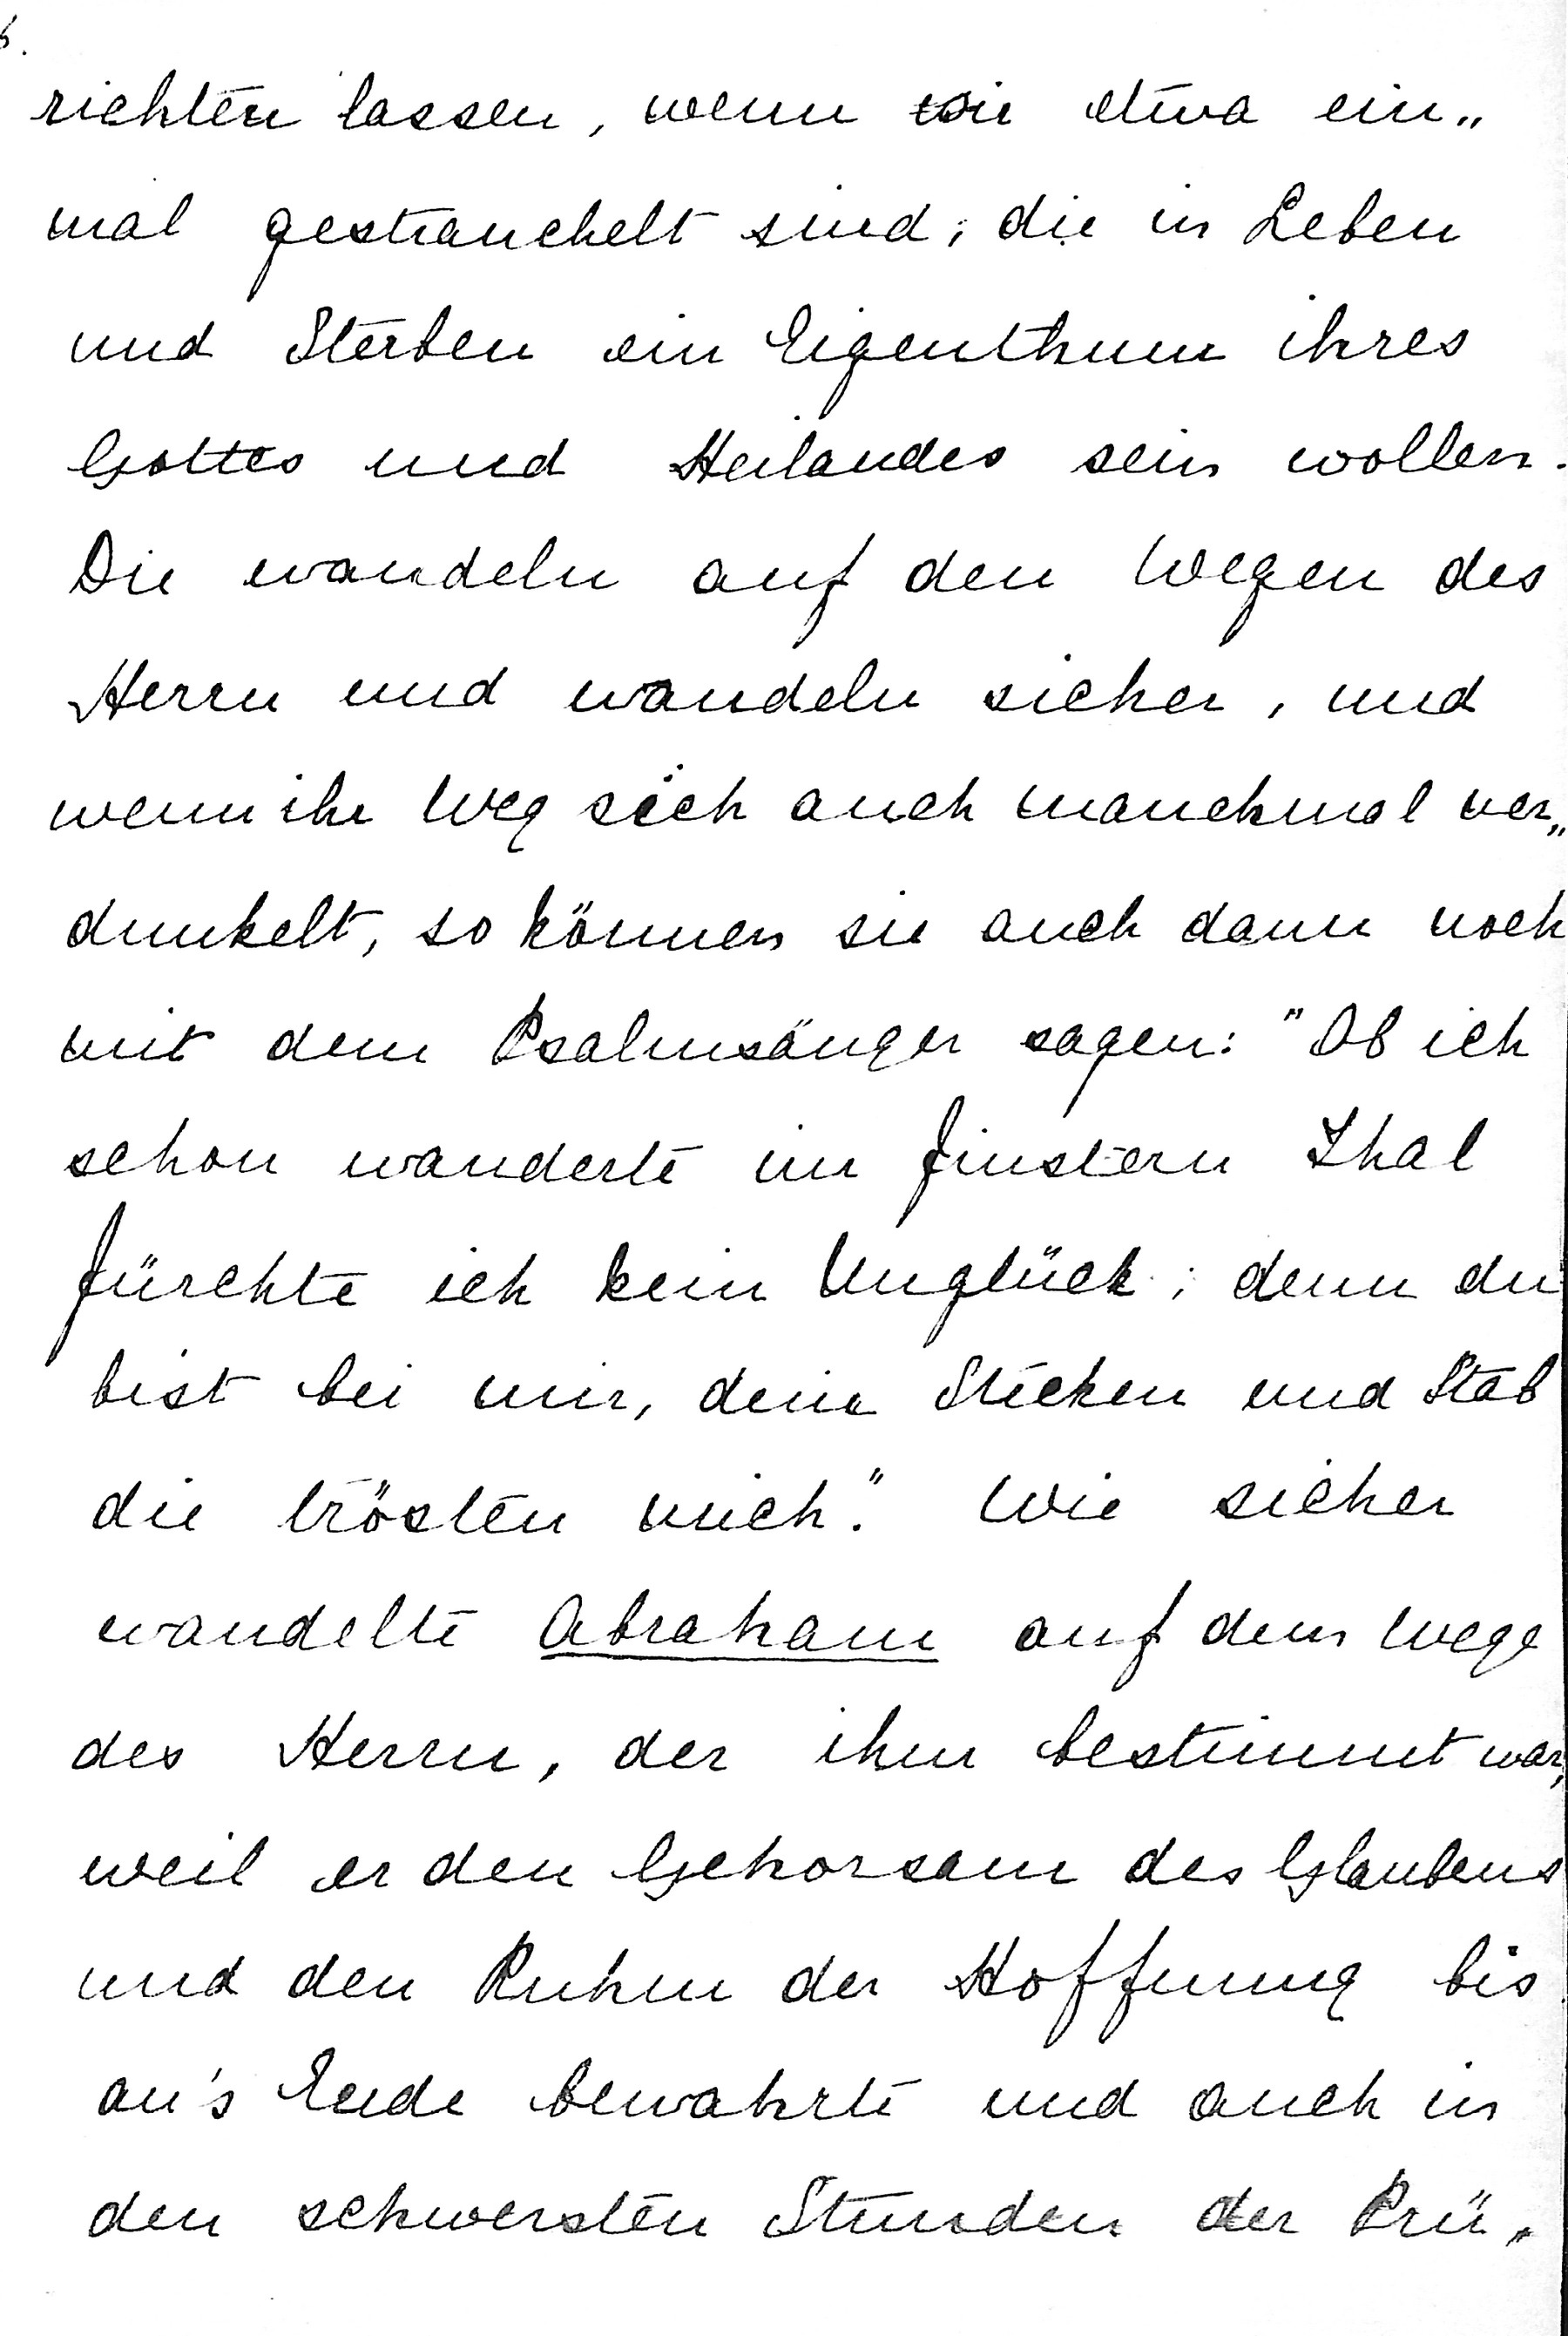 richten lassen, wenn sie etwa ein„
mal gestrauchelt sind; die in Leben
und Sterben ein Eigenthum ihres
Gottes und Heilandes sein wollen.
Die wandeln auf den Wegen des
Herrn und wandeln sicher, und
wenn ihr Weg sich auch manchmal ver„
dunkelt, so können sie auch dann noch
mit dem Psalmsänger sagen: "Ob ich
schon wanderte im finstern Thal
fürchte ich kein Unglück; denn du
bist bei mir, dein Stecken und Stab
die trösten mich." Wie sicher
wandelte Abraham auf dem Wege
des Herrn, der ihm bestimmt war,
weil er den Gehorsam des Glaubens
und den Ruhm der Hoffnung bis
an's Ende bewahrte und auch in
den schwersten Stunden der Prü„